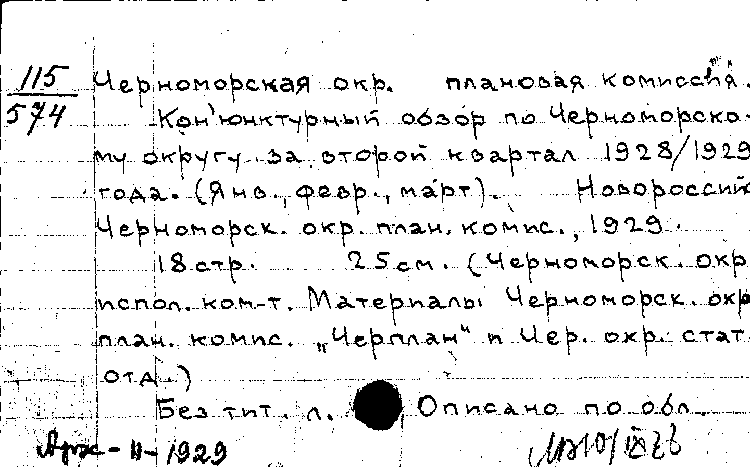 115
574
Черноморская окр. плановая комиссия.
Кон'юнктурный обзор по Черноморско-
му округу за второй квартал 1928/1929
года. (Янв., февр., март). Новороссий
Черноморск. окр. план. комис., 1929.
18 стр. 25 см. (Черноморск. окр
испол. ком-т. Материалы Черноморск. окр
план. комис. „Черплан" и Чер. окр. стат.
отд.)
Без тит. л. Описано по обл.
Арх-II-1929